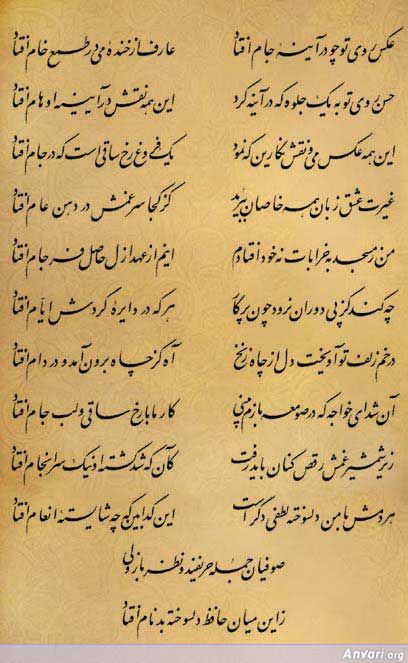 عکس روی تو چو در آینهٔ جام افتاد عارف از خندهٔ می در طمع خام افتاد
حسن روی تو به یک جلوه که در آینه کرد این همه نقش در آیینهٔ اوهام افتاد
این همه عکس می و نقش نگارین که نمود یک فروغ رخ ساقی است که در جام افتاد
غیرت عشق زبان همه خاصان ببرید کز کجا سر غمش در دهن عام افتاد
من ز مسجد به خرابات نه خود افتادم اینم از عهد ازل حاصل فرجام افتاد
چه کند کز پی دوران نرود چون پرگار هر که در دایرهٔ گردش ایام افتاد
در خم زلف تو آویخت دل از چاه زنخ آه کز چاه برون آمد و در دام افتاد
آن شد ای خواجه که در صومعه بازم بینی کار ما با رخ ساقی و لب جام افتاد
زیر شمشیر غمش رقص کنان باید رفت کآن که شد کشتهٔ او نیک سرانجام افتاد
هر دمش با من دلسوخته لطفی دگر است این گدا بین که چه شایستهٔ انعام افتاد
صوفیان جمله حریفند و نظرباز ولی
زاین میان حافظ دلسوخته بدنام افتاد
Anvari.org